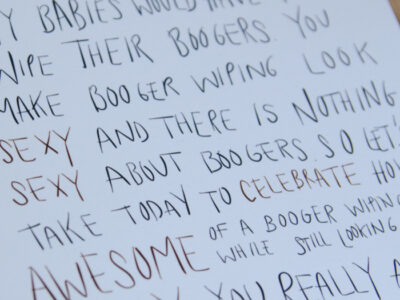 BABIES WOULD HAVE
WIPE THEIR BOOGERS. YOU
MAKE BOOGER WIPING LOOK
SEXY AND THERE IS NOTHING
SEXY ABOUT BOOGERS. SO LET'S
TAKE TODAY TO CELEBRATE HOW
AWESOME OF A BOOGER WIPING
WHILE STILL LOOKING
YOU REALLY A